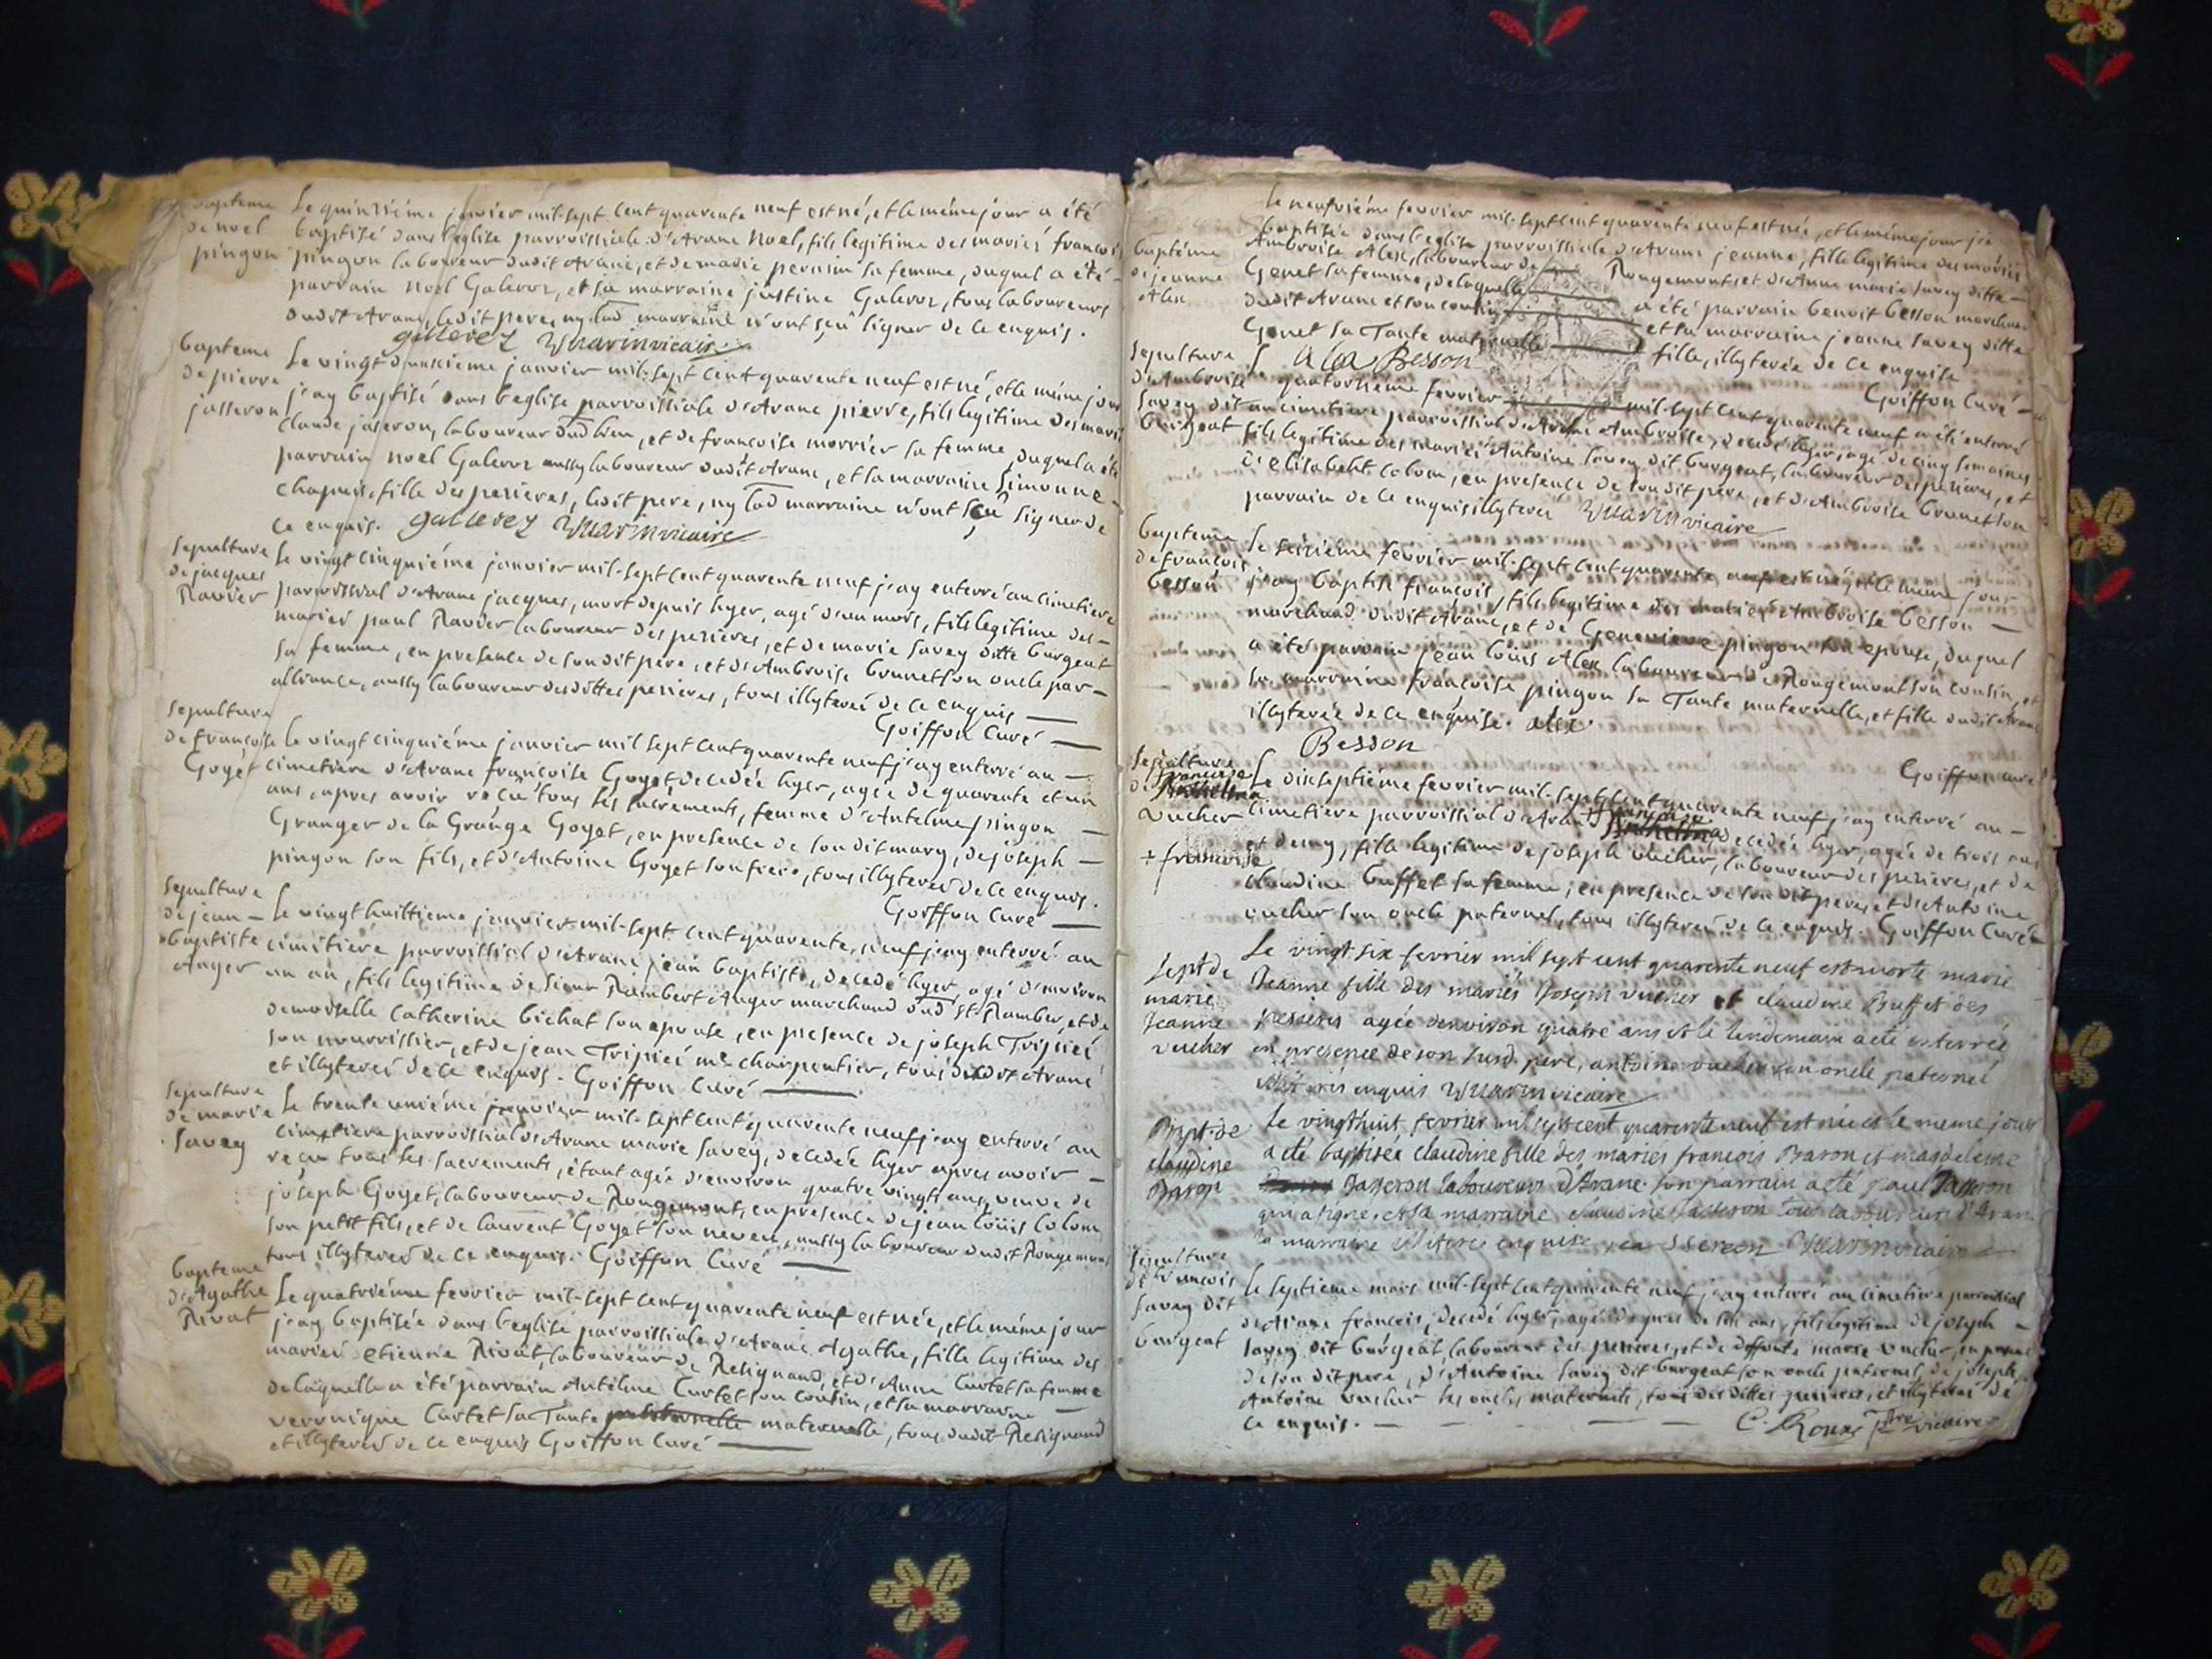 bapteme
de noel
pingon
Le quinzième janvier mil-sept cent quarente neuf est né, et le même jour a été
baptisé dans l'eglise parroissiale d'Arane Noel, fils legitime des mariés françois
pingon laboureur dudit Arane, et de marie pernin sa femme, duquel a été
parrain noel Galeroz, et sa marraine justine Galeroz, tous laboureurs
dudit Arane, ledit pere, ny lad marraine n'ont sçu signer de ce enquis.
gallerez Wuarin vicaire
bapteme
de pierre
jasseron
Le vingt janvier mil-sept cent quarente neuf est né, et le même jour
j'ay baptisé dans l'eglise parroissiale d'Arane pierre, fils legitime des mariés
claude jasseron, laboureur dud lieu, et de francoise morrier sa femme, duquel a été
parrain noel Galeroz aussy laboureur dudit Arane, et sa marraine Simonne
chapuis fille des perieres, ledit pere, ny lad marraine n'ont sçu signer de
ce enquis. gallerez Wuarin vicaire
sepulture
de jacques
Ravier
Le vingt cinquiéme janvier mil-sept cent quarente neuf j'ay enterré au cimetiere
parroissial d'Arane jacques, mort depuis hyer, agé d'un mois, fils legitime des
mariés paul Ravier laboureur des perieres, et de marie savey ditte burgeat
sa femme, en presence de son dit pere, et d'Ambroise brunet son oncle par
alliance, aussy laboureur desdittes perieres, tous illyterés de ce enquis
Goiffon Curé
sepulture
de francoise
Goyet
Le vingt cinquiéme janvier mil sept cent quarente neuf j'ay enterré au
cimetiere d'Arane françoise Goyet, decedée hyer, agée de quarente et un
ans, apres avoir reçu tous les sacrements, femme d'Antelme pingon
Granger de la Grange Goyet, en presence de son dit mary, de joseph
pingon son fils, et d'Antoine Goyet son frere, tous illyterés de ce enquis.
Goiffon Curé
sepulture
de jean
baptiste
Auger
Le vingt huittieme janvier mil-sept cent quarente neuf j'ay enterré au
cimitiere parroissial d'Arane jean baptiste, decedé hyer, agé d'environ
un an, fils legitime de sieur Rambert Auger marchand dud st Rambert, et de
demoiselle Catherine bichat son epouse, en presence de joseph Tripier
son nourrissier, et de jean Tripier me charpentier, tous dudit Arane
et illyterés de ce enquis. Goiffon Curé
sepulture
de marie
savey
Le trente uniéme janvier mil-sept cent quarente neuf j'ay enterré au
cimetiere parroissial d'Arane marie savey, decedée hyer apres avoir
reçu tous les sacrements, étant agée d'environ quatre vingts ans, veuve de
joseph Goyet, laboureur de Rougemont, en presence de jean loüis Colom
son petit fils, et de laurent Goyet son neveu, aussy laboureur dudit Rougemont
tous illyterés de ce enquis. Goiffon Curé
bapteme
d'Agathe
Rivat
Le quatriéme fevrier mil-sept cent quarente neuf est née, et le même jour
j'ay baptisée dans l'eglise parroissiale d'Arane Agathe, fille legitime des
mariés etienne Rivat, laboureur de Resignaud, et d'Anne Curtet sa femme
de laquelle a été parrain Antelme Curtet son cousin, et sa marraine
veronique Curtet sa Tante maternelle, tous dudit Resignaud
et illyterés de ce enquis Goiffon Curé
baptéme
de jeanne
Alex
Le neufviéme fevrier mil-sept cent quarente neuf est née, et le même jour j'ay
baptisée dans l'eglise parroissiale d'Arane jeanne, fille legitime des mariés
Ambroise Alex, laboureur de Rougemont, et d'Anne marie savey ditte
Genet sa femme, de laquelle a été parrain benoit besson marchand
dudit Arane et son cousin et sa marraine jeanne savey ditte
Genet sa Tante maternelle fille, illyterée de ce enquise
Besson
Goiffon Curé
sepulture
d'Ambroise
savey dit
burgeat
Le quatorzieme fevrier mil-sept cent quarente neuf a été enterré
au cimetiere parroissial d'Arane Ambroise, decedé hyer, agé de cinq semaines
fils legitime des mariés Antoine savey dit burgeat, laboureur des perieres, et
d'elisabeht Colom, en presence de son dit pere, et d'Ambroise brunet son
parrain de ce enquis illyteré Wuarin vicaire
bapteme
de francois
besson
Le seizième fevrier mil-sept cent quarente neuf est né, et le même jour
j'ay baptisé françois, fils legitime des mariés Ambroise besson
marchand dudit Arane, et de Genevieve pingon son epouse, duquel
a été parrain jean loüis Alex laboureur de Rougemont son cousin, et
sa marraine françoise pingon sa Tante maternelle, et fille dudit Arane
illyterée de ce enquise. alex
Besson
Goiffon curé
sepulture
de francoise
vucher
+ francoise
Le dixseptiéme fevrier mil-sept cent quarente neuf j'ay enterré au
cimetiere parroissial d'Arane francoise decedée hyer, agée de trois ans
et demy, fille legitime de joseph vucher, laboureur des perieres, et de
claudine buffet sa femme, en presence de son dit pere, et d'Antoine
vucher son oncle paternel, tous illyterés de ce enquis. Goiffon Curé
Sept de
marie
Jeanne
vucher
Le vingt six fevrier mil sept cent quarente neuf est morte marie
Jeanne fille des mariés Joseph vucher et claudine Buffet des
perieres agée denviron quatre ans et le lendemain a été enterrée
en presence de son susd. pere, antoine vucher son oncle paternel
enquis Wuarin vicaire
Bapt de
claudine
Baron
Le vingt huit fevrier mil sept cent quarente neuf est née et le meme jour
a été baptisée claudine fille des mariés francois Baron et magdeleine
Jasseron laboureur d'Arane. son parrain a été paul Jasseron
qui a signé et sa marraine claudine Jasseron tous laboureurs d'Arane
la marraine illiterée enquise Wuarin vicaire
sepulture
de francois
savey dit
burgeat
Le septieme mars mil-sept cent quarente neuf j'ay enterré au cimetiere parroissial
d'Arane francois, decedé hyer, agé de pres de six ans, fils legitime de joseph
savey dit burgeat laboureur des perieres, et de deffunte marie vucher, en presence
de son dit pere, d'Antoine savey dit burgeat son oncle paternel, de joseph,
Antoine vucher ses oncles maternels, tous des dittes perieres, et illyterés de
ce enquis. C. Roux ptre vicaire